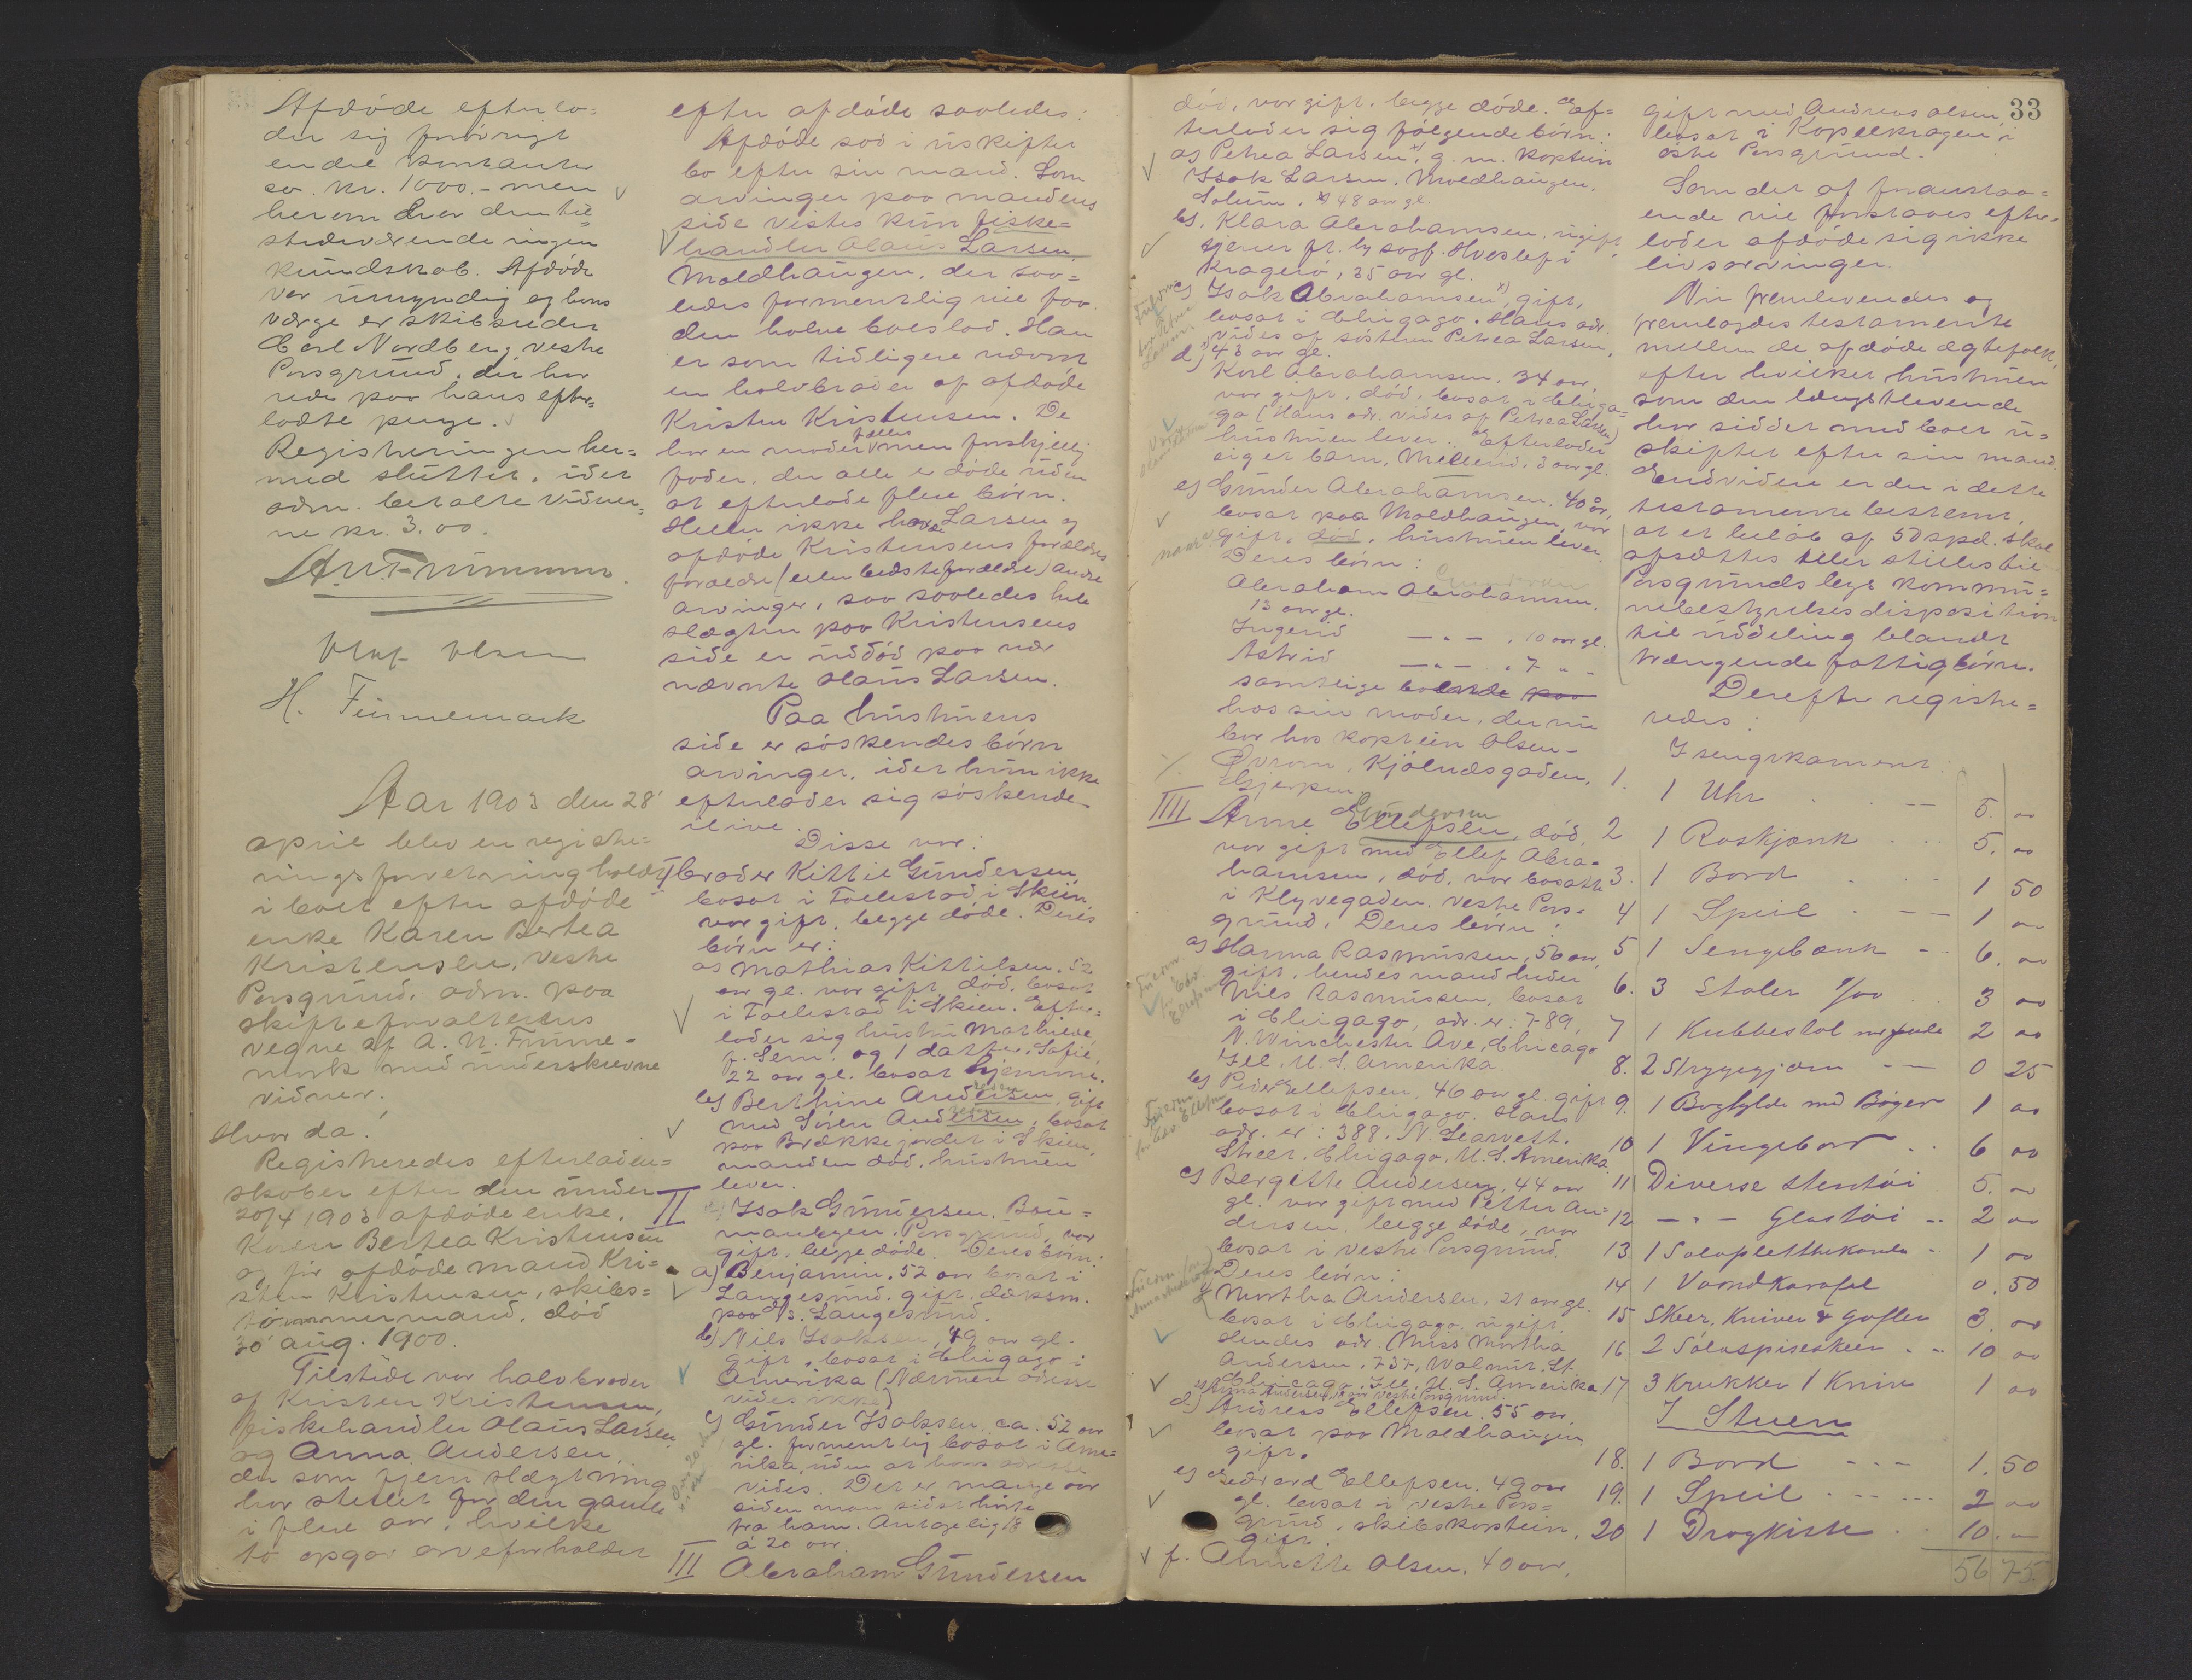 Afdøde efterlo=
der sig forøvrigt
endel kontanter
ca. kr. 1000.- men
herom har den til=
stedeværende ingen
kundskab. Afdøde
var umyndig og hans
værge er skibsreder
Carl Nordberg, vestre
Porsgrund, der har
rede paa hans efter=
ladte penge.
Registreringen her=
med sluttet, idet
adm. betalte vidner=
ne kr. 3.00.
A. N. Finnemark
Olaf Olsen
H. Finnemark
Aar 1903 den 28'
april blev en registre=
ringsforretning holdt
i boet efter afdøde
enke Karen Bertea
Kristensen, vestre
Porsgrund, adm. paa
skifteforvalterens
vegne af A. N. Finne=
mark med underskrevne
vidner.
Hvor da:
Registreredes efterladen=
skaber efter den under
20/4 1903 afdøde enke,
Karen Bertea Kristensen
og før afdøde mand Kri=
sten Kristensen, skibs=
tømmermand, død
30' aug. 1900.
Tilstede var halvbroder
af Kristen Kristensen,
fiskehandler Olaus Larsen
og Anna Andersen,
der som fjern slægtning
har stellet for den gamle
i flere aar, hvilke
to opgav arveforholdet
efter afdøde saaledes:
Afdøde sad i uskiftet
bo efter sin mand. Som
arvinger paa mandens
side vistes kun fiske=
handler Olaus Larsen,
Moldhaugen, der saa=
ledes formentlig vil faa
den halve boeslod. Han
er som tidligere nævnt
en halvbroder af afdøde
Kristen Kristensen. De
har en moder fælles men forskjellig
fader, der alle er døde uden
at efterlade flere børn.
Heller ikke havde Larsen og
afdøde Kristensens forældres
forældre (eller bedsteforældre) andre
arvinger, saa saaledes hele
slægten paa Kristensens
side er uddød paa nær
nævnte Olaus Larsen.
Paa hustruens
side er søskendes børn
arvinger, idet hun ikke
efterlader sig søskende
ilive.
Disse var:
I broder Kittil Gundersen,
bosat i Follestad i Skien,
var gift, begge døde. Deres
børn er:
a) Mathias Kittilsen, 52
aar gl. var gift, død, bosat
i Follestad i Skien. Efter=
lader sig hustru Mathilde
f. Lem, og 1 datter, Sofie,
22 aar gl. bosat hjemme.
b) Berthine Andersen, gift
med Søren Andersen, bosat
paa Brækkejordet i Skien,
manden død, hustruen
lever.
II Isak Gundersen, Bau=
mankgen, Porsgrund, var
gift, begge døde. Deres børn:
a) Benjamin, 52 aar bosat i
Langesund, gift, dæksm.
paa D/S. Langesund.
b) Nils Isaksen, 49 aar gl.
gift, bosat i Chigago i
Amerika (Nærmere adresse
vides ikke)
c) Gunder Isaksen ca. 52 aar
gl. formentlig bosat i Ame=
rika, uden at hans adresse
vides. Det er mange aar
siden man sidst hørte
fra ham. Antagelig 18
à 20 aar.
III Abraham Gundersen
død, var gift, begge døde. Ef=
terlader sig følgende børn:
a) Petrea Larsen x), g. m. kaptein
Isak Larsen, Moldhaugen,
Solum, x) 48 aar gl.
b) Klara Abrahamsen, ugift,
tjener fr. bysogf. Hveslef i
Kragerø, 35 aar gl.
c) Isak Abrahamsen x), gift,
bosat i Chigago. Hans adr.
vides af søsteren Petrea Larsen,
x) 43 aar gl.
d) Karl Abrahamsen, 34 aar,
var gift, død, bosat i Chiga=
go (Hans adr. vides af Petrea Larsen)
hustruen lever. Efterlader
sig et barn, Mellerid, 3 aar gl.
e) Gunder Abrahamsen, 40 år,
bosat paa Moldhaugen, var
gift, død, hustruen lever.
Deres børn:
Abraham Abrahamsen,
13 aar gl.
Ingerid — " — , 10 aar gl.
Astrid — " — , 7 " "
samtlige boende paa
hos sin moder, der nu
bor hos kaptein Olsen-
Øvrom, Kjølnæsgaden,
Gjerpen.
IIII Anne Gundersen Ellefsen, død,
var gift med Ellef Abra=
hamsen, død, var bosatte
i Klyvegaden, vestre Pors=
grund. Deres børn:
a) Hanna Rasmussen, 56 aar,
gift, hendes mand heder
Nils Rasmussen, bosat
i Chigago, adr. er: 789,
N. Winchester Ave, Chicago
Ill. U. S. Amerika
b) Peder Ellefsen, 46 aar gl. gift
bosat i Chigago. Hans
adr. er: 388. N Learvett.
Street. Chigago. U. S. Amerika.
c) Bergitte Andersen, 44 aar
gl. var gift med Petter An=
dersen, begge døde, var
bosat i vestre Porsgrund.
Deres børn:
Martha Andersen, 21 aar gl.
bosat i Chigago, ugift.
Hendes adr. Miss Martha
Andersen, 737, Walnut. St.
Chicago. Ill. U. S. Amerika
Anna Andersen, vestre Porsgrund.
d) Andreas Ellefsen, 55 aar,
bosat paa Moldhaugen,
gift.
e) Edvard Ellefsen, 49 aar
gl. bosat i vestre Pors=
grund, skibskaptein,
gift.
f. Annette Olsen, 40 aar,
33
gift med Andreas Olsen,
bosat i Kopelkragen i
østre Porsgrund.
Som det af foranstaa=
ende vil forstaaes efter=
lader afdøde sig ikke
livsarvinger.
Der fremlevendes og
fremlagdes testamente
mellem de afdøde ægtefolk,
efter hvilket hustruen
som den længstlevende
har siddet med boet u=
skiftet efter sin mand.
Endvidere er der i dette
testamente bestemt,
at et beløb af 50 spd. skal
afsættes eller stilles til
Porsgrunds bys kommu=
nebestyrelses disposition
til uddeling blandt
trængende fattigbørn.
Derefter registre=
redes:
I sengekammer
1. 1 Uhr 5. 00
2 1 Raskjænk 5. 00
3. 1 Bord 1 50
4 1 Speil 1 00
5 1 Sengebænk 6. 00
6. 3 Stoler 1/00 3 00
7 1 Kubbestol m pude 2 00
8. 2 Strygejern 0 25
9. 1 Boghylde med Bøger 1 00
10 1 Vingebord 6 00
11 Diverse Stentøi 5. 00
12 — " — Glastøi 2 00
13 1 Sølvpletthekande 1 00
14 1 Vandkaraffel 0. 50
15 Skeer, Kniver & Gafler 3. 00
16. 2 Sølvspiseskeer 10 00
17 3 Krukker 1 Kniv 1 00
I Stuen
18. 1 Bord 1. 50
19. 1 Speil 2 00
20 1 Dragkiste 10. 00
56 75